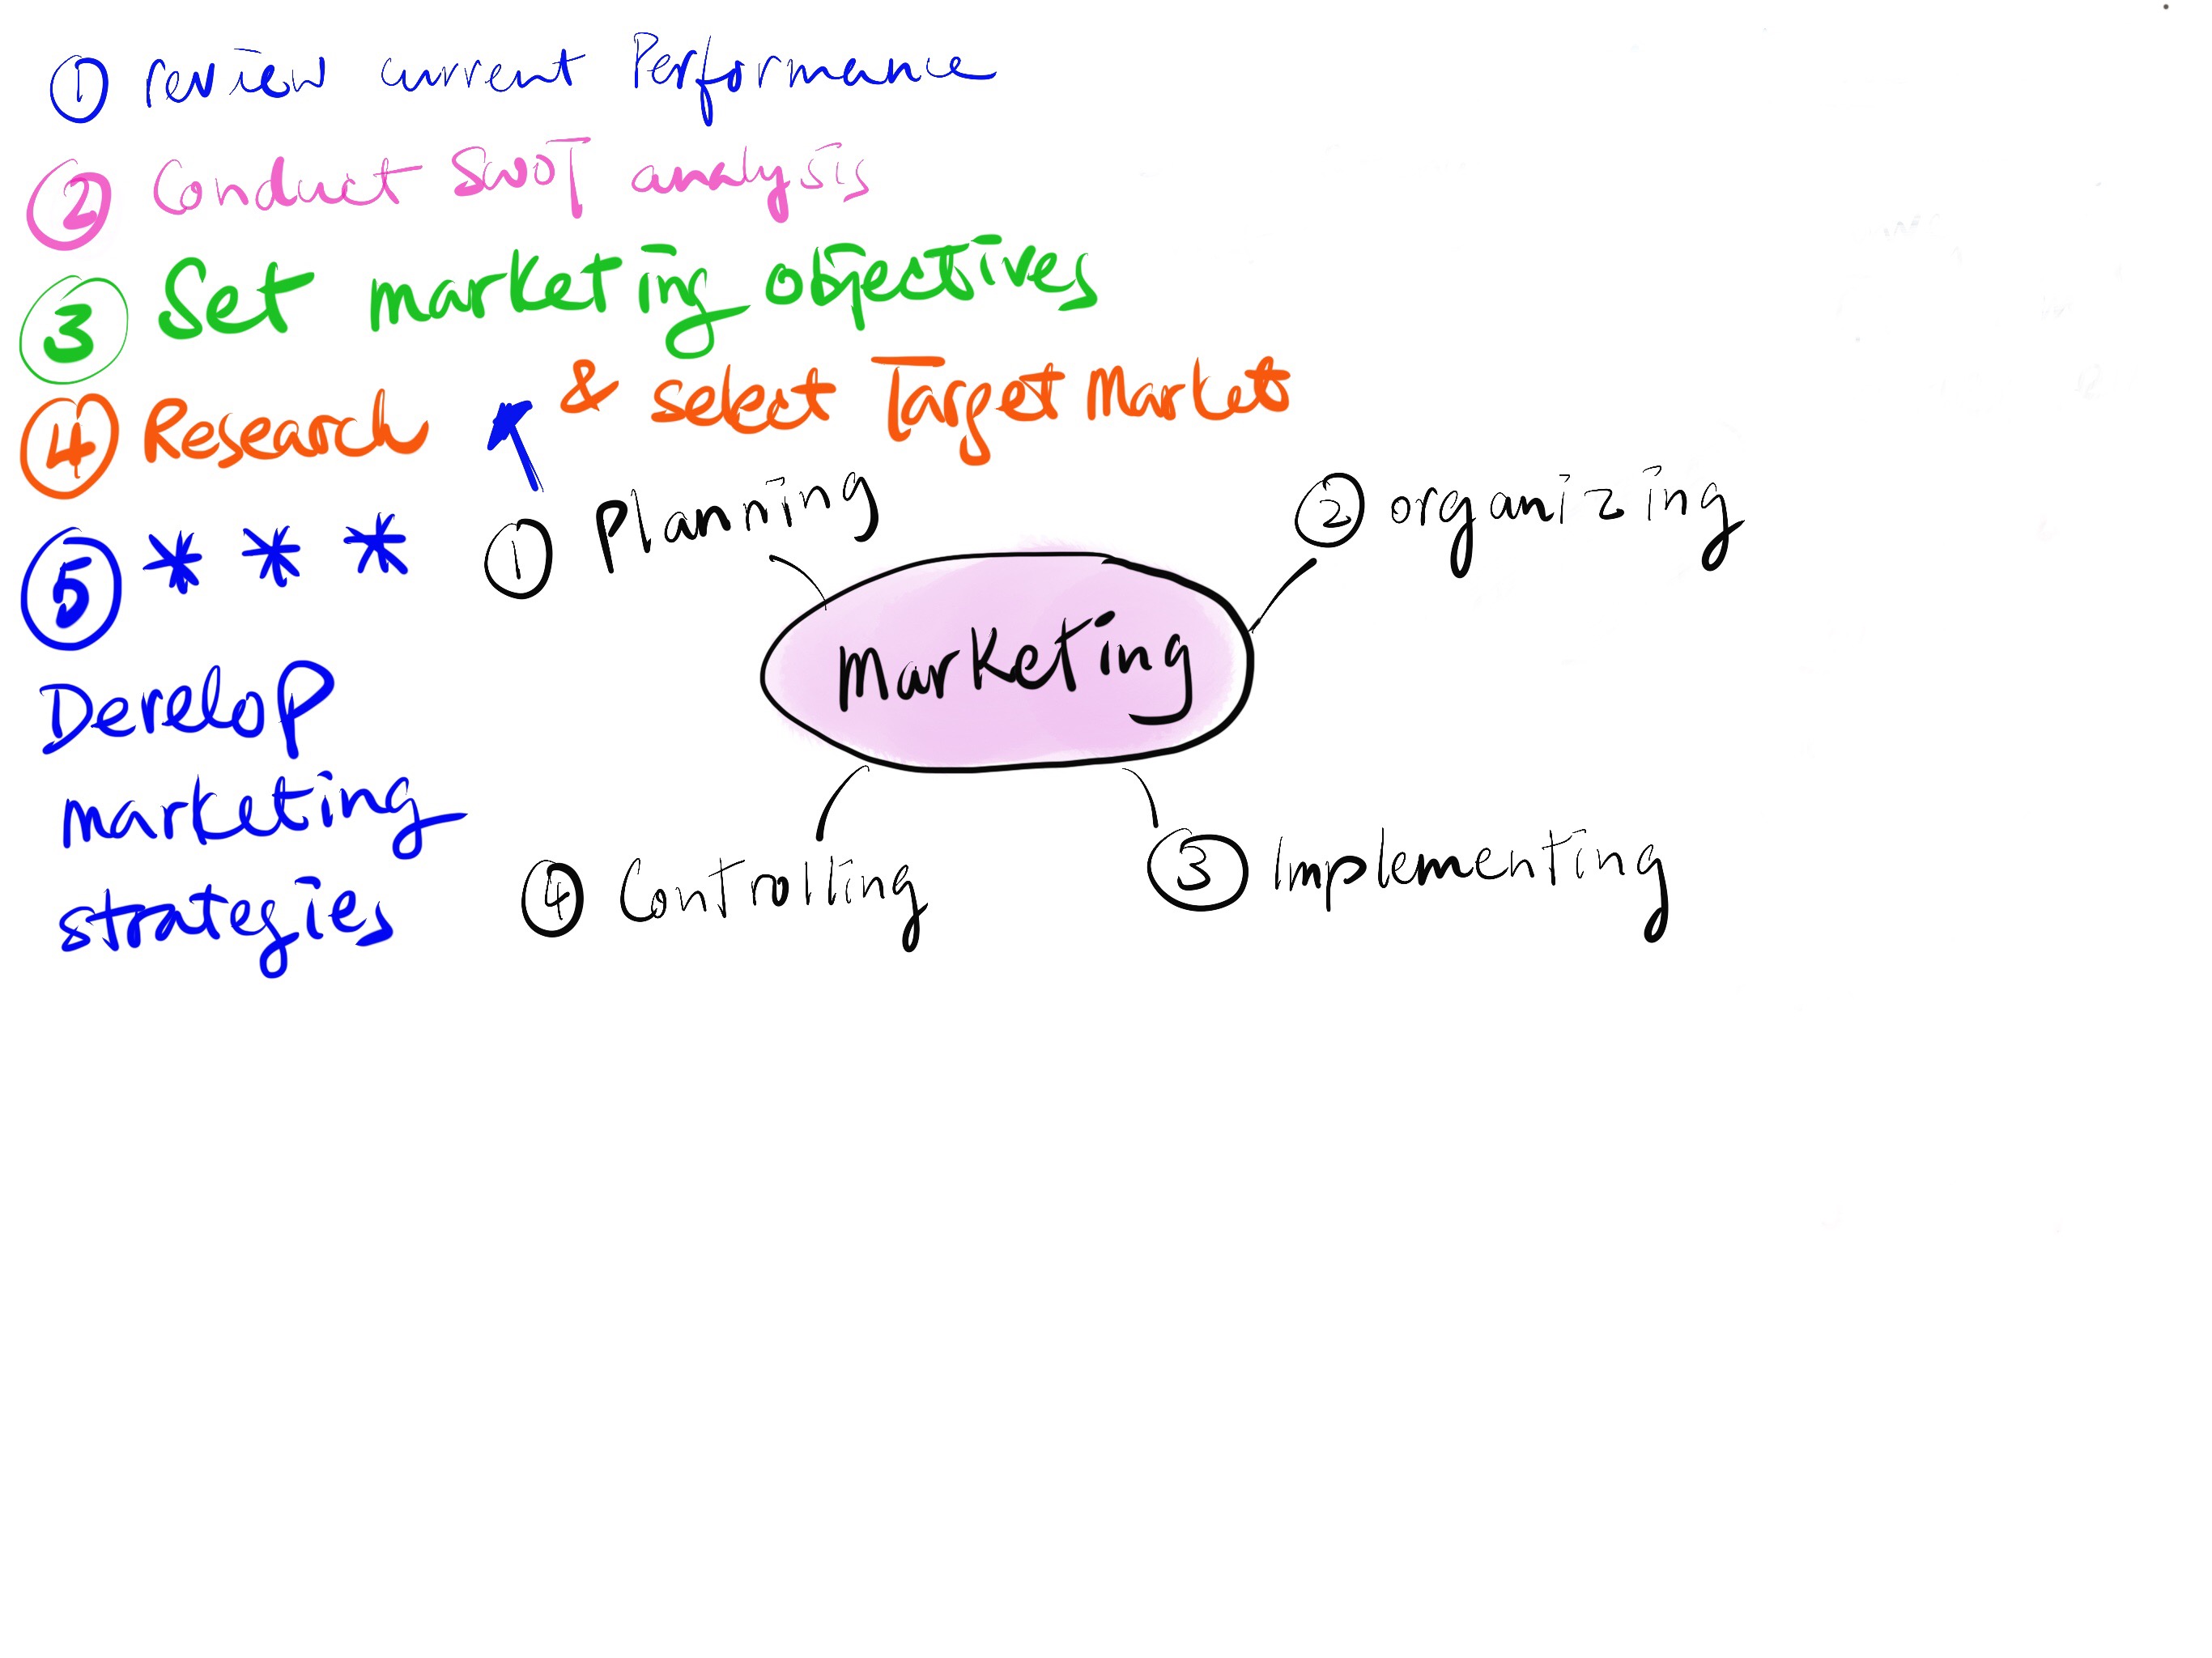 ① review current Performance
② Conduct SWOT analysis
③ Set marketing objectives
④ Research & select Target Market
① Planning
② organizing
⑤ * * *
Marketing
Develop
marketing
strategies
④ Controlling
③ Implementing